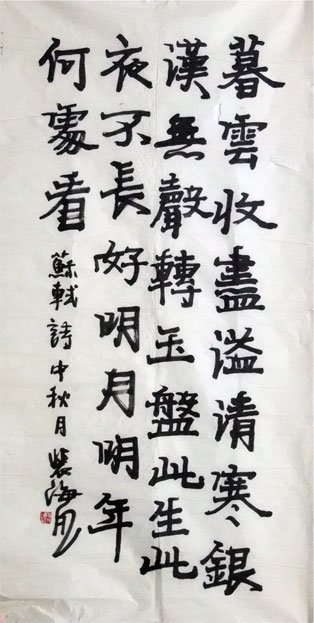 暮雲收盡溢清寒銀
漢無聲轉玉盤此生此
夜不長好明月明年
何處看
蘇軾詩中秋月